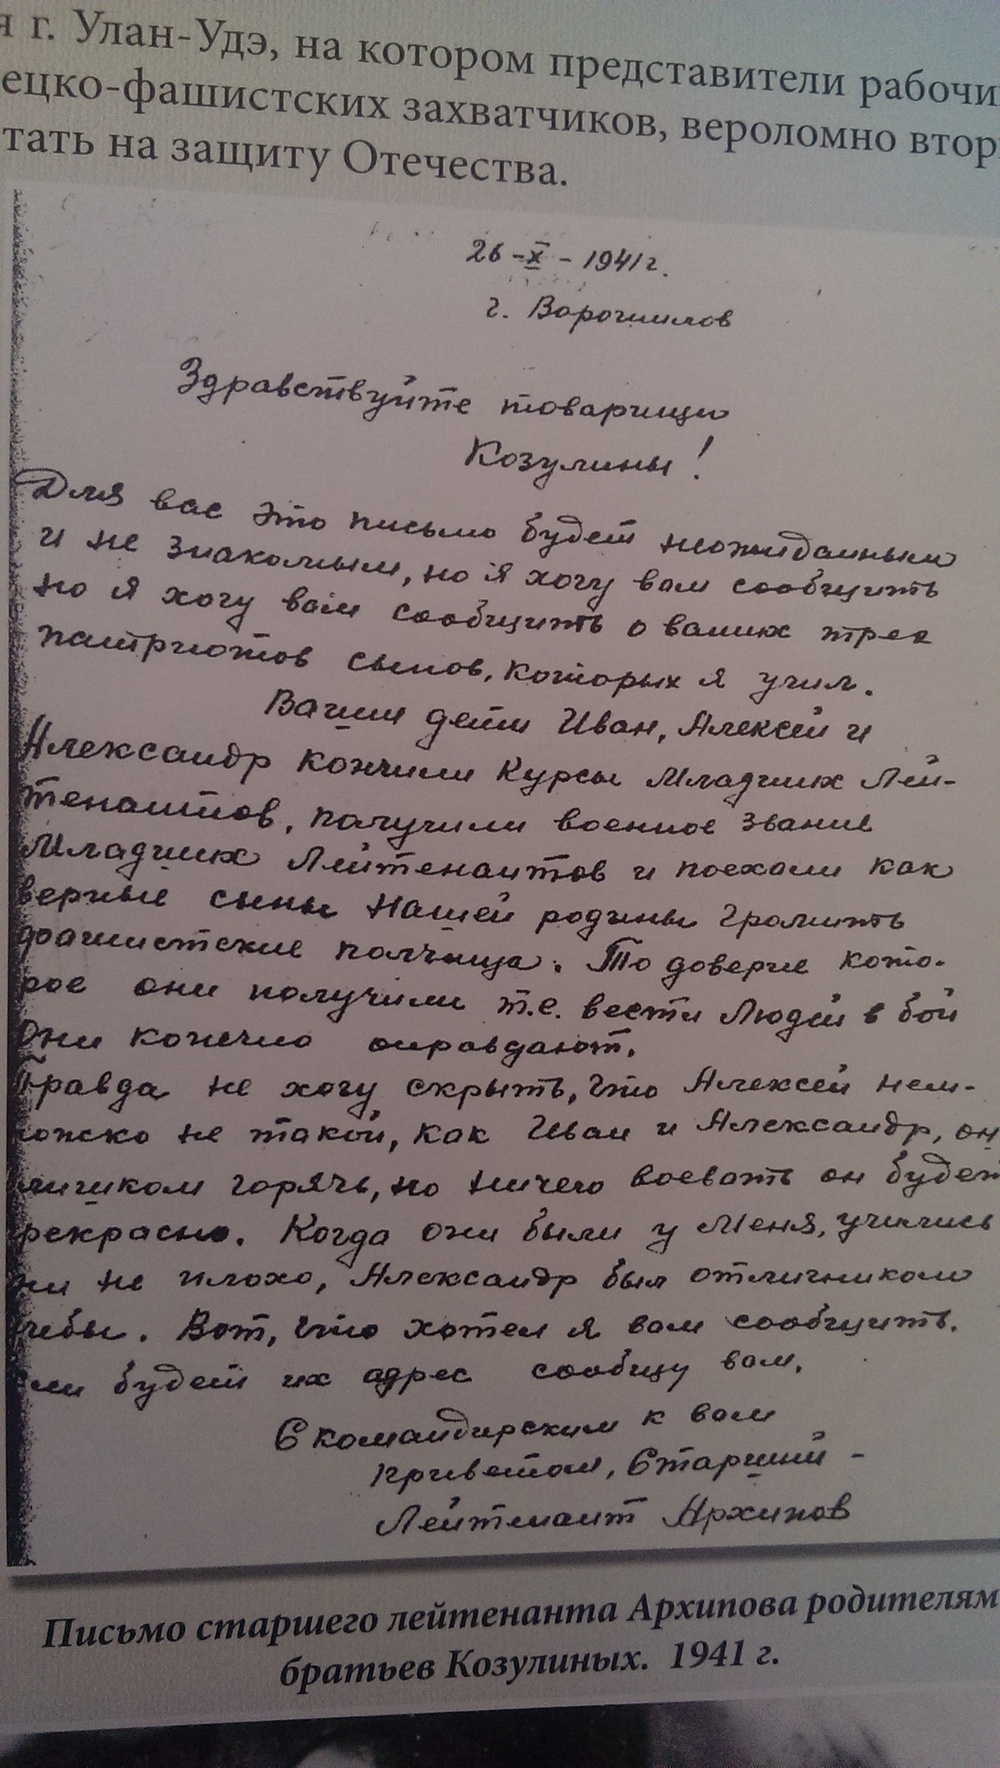 я г. Улан-Удэ, на котором представители рабочи
ецко-фашистских захватчиков, вероломно втор
тать на защиту Отечества.
26-X-1941г.
г. Ворошилов
Здравствуйте товарищи
Козулины!
Для вас это письмо будет неожиданным
и не знакомым, но я хочу вам сообщить
но я хочу вам сообщить о ваших трех
патриотов сынов, которых я учил.
Ваши дети Иван, Алексей и
Александр кончили Курсы Младших Лей-
тенантов, получили военное звание
Младших Лейтенантов и поехали как
верные сыны Нашей родины громить
фашистские полчища. То доверие кото-
рое они получили т.е. вести Людей в бой
Они конечно оправдают.
Правда не хочу скрыть, что Алексей нем-
ножко не такой, как Иван и Александр, он
слишком горячь, но ничего воевать он будет
прекрасно. Когда они были у Меня, учились
они не плохо, Александр был отличником
учебы. Вот, что хотел я вам сообщить.
Если будет их адрес сообщу вам.
С командирским к вам
приветом, Старший -
Лейтенант Архипов
Письмо старшего лейтенанта Архипова родителям
братьев Козулиных. 1941 г.